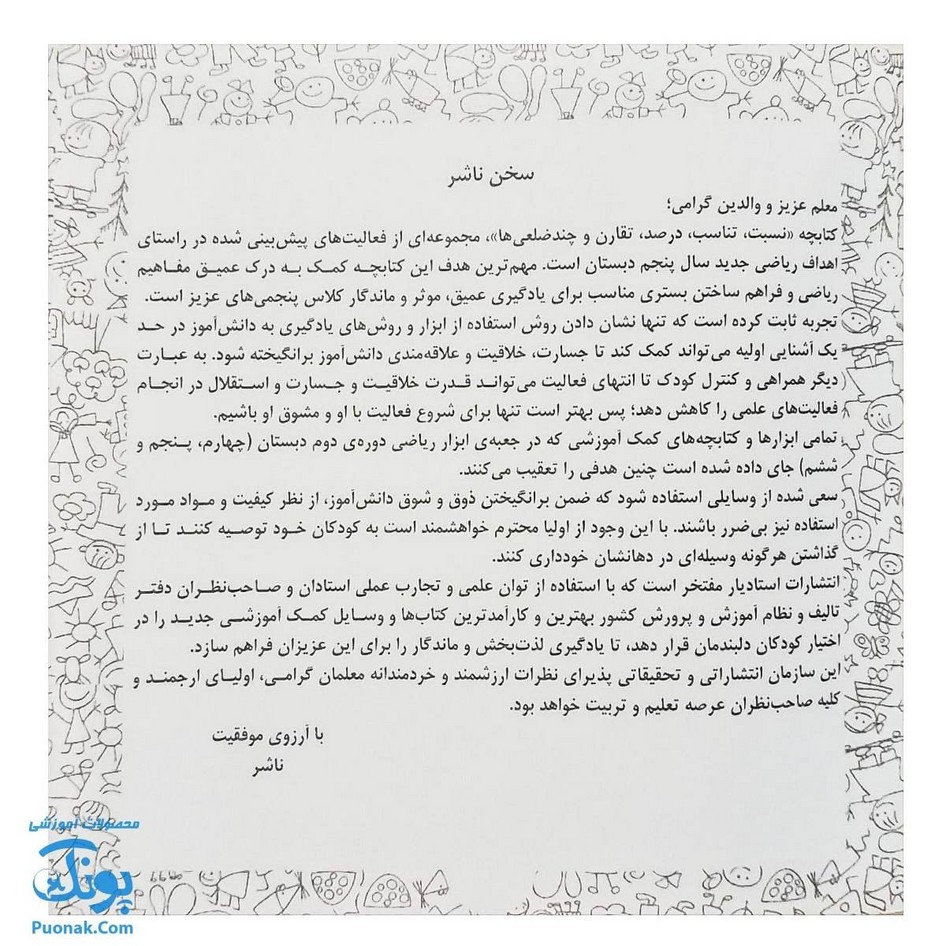 سخن ناشر
معلم عزیز و والدین گرامی؛
کتابچه «نسبت، تناسب، درصد، تقارن و چندضلعی‌ها»، مجموعه‌ای از فعالیت‌های پیش‌بینی شده در راستای
اهداف ریاضی جدید سال پنجم دبستان است. مهم‌ترین هدف این کتابچه کمک به درک عمیق مفاهیم
ریاضی و فراهم ساختن بستری مناسب برای یادگیری عمیق، موثر و ماندگار کلاس پنجمی‌های عزیز است.
تجربه ثابت کرده است که تنها نشان دادن روش استفاده از ابزار و روش‌های یادگیری به دانش‌آموز در حد
یک آشنایی اولیه می‌تواند کمک کند تا جسارت، خلاقیت و علاقه‌مندی دانش‌آموز برانگیخته شود. به عبارت
دیگر همراهی و کنترل کودک تا انتهای فعالیت می‌تواند قدرت خلاقیت و جسارت و استقلال در انجام
فعالیت‌های علمی را کاهش دهد؛ پس بهتر است تنها برای شروع فعالیت با او و مشوق او باشیم.
تمامی ابزارها و کتابچه‌های کمک آموزشی که در جعبه‌ی ابزار ریاضی دوره‌ی دوم دبستان (چهارم، پنجم و
ششم) جای داده شده است چنین هدفی را تعقیب می‌کنند.
سعی شده از وسایلی استفاده شود که ضمن برانگیختن ذوق و شوق دانش‌آموز، از نظر کیفیت و مواد مورد
استفاده نیز بی‌ضرر باشند. با این وجود از اولیا محترم خواهشمند است به کودکان خود توصیه کنند تا از
گذاشتن هرگونه وسیله‌ای در دهانشان خودداری کنند.
انتشارات استادیار مفتخر است که با استفاده از توان علمی و تجارب عملی استادان و صاحب‌نظران دفتر
تالیف و نظام آموزش و پرورش کشور بهترین و کارآمدترین کتاب‌ها و وسایل کمک آموزشی جدید را در
اختیار کودکان دلبندمان قرار دهد، تا یادگیری لذت‌بخش و ماندگار را برای این عزیزان فراهم سازد.
این سازمان انتشاراتی و تحقیقاتی پذیرای نظرات ارزشمند و خردمندانه معلمان گرامی، اولیای ارجمند و
کلیه صاحب‌نظران عرصه تعلیم و تربیت خواهد بود.
با آرزوی موفقیت
ناشر
محصولات آموزشی
پونک
Puonak.Com